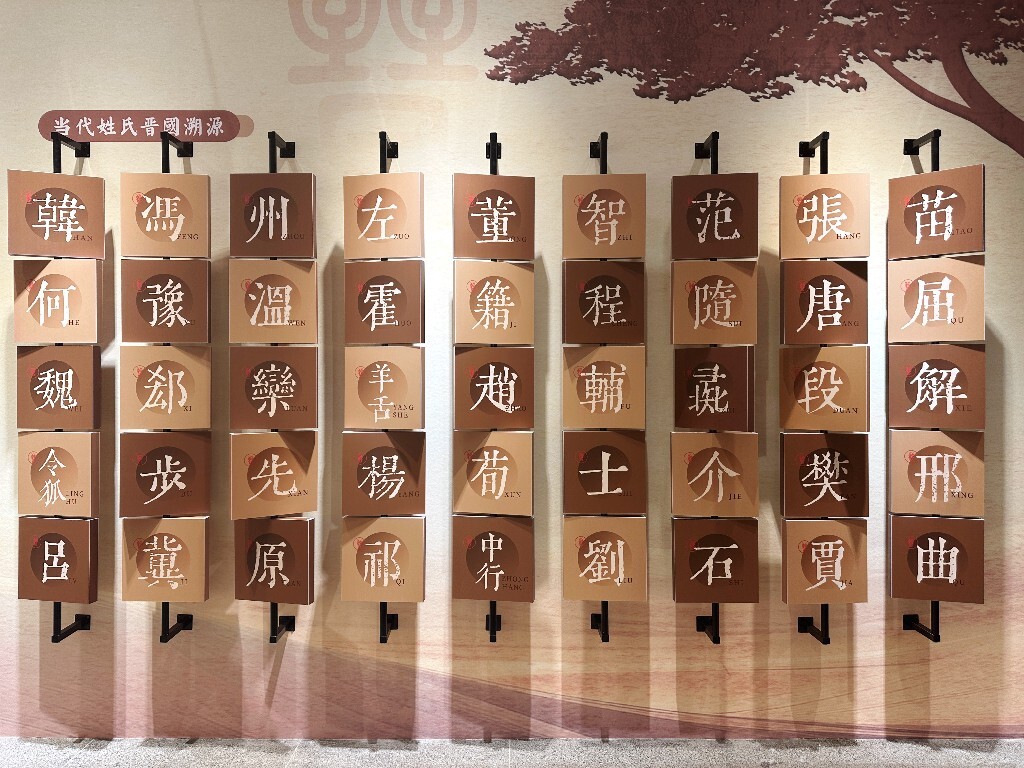 当代姓氏晋國溯源
韓 馮 州 左 董 智 范 張 苗
HAN FENG ZHOU ZUO ZHI HANG MIAO
何 豫 溫 霍 籍 程 隨 唐 屈
HE WEN JI QU
魏 郄 欒 羊舌 趙 輔 段 解
WEI XI LUAN YANG SHE FU DUAN XIE
令狐 步 先 楊 荀 士 介 樊 邢
LING HU XIAN YANG XUN SHI JIE XING
呂 冀 原 祁 中行 劉 石 賈 曲
QI ZHONG HANG LIU JIA QU